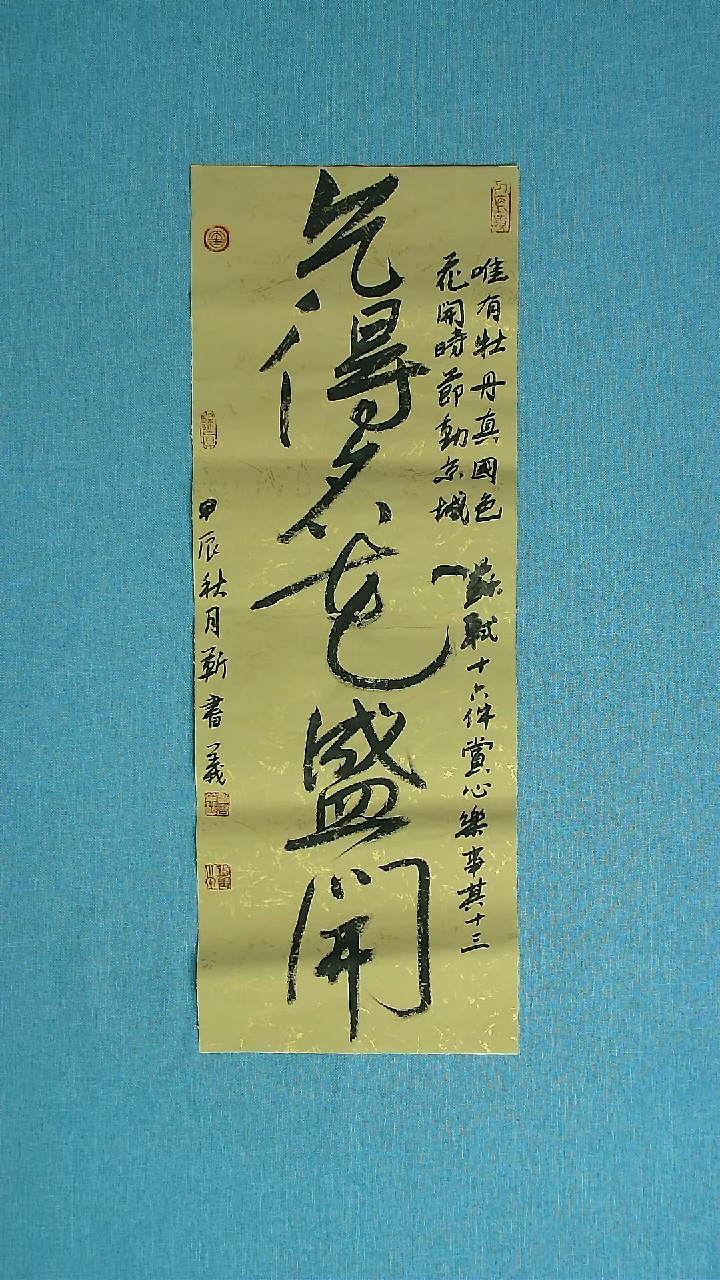 乞得名花盛開
唯有牡丹真國色
花開時節動京城
蘇軾十六件賞心樂事其十三
甲辰秋月靳書義